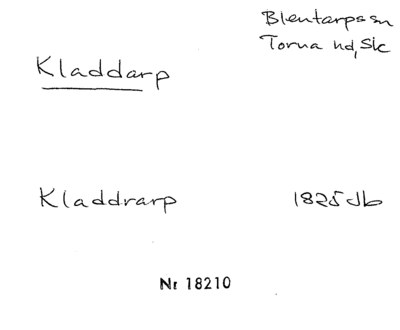 Blentarps sn
Torna hd, Sk
Kladdarp
Kladdrarp 1825 Jb
Nr 18210